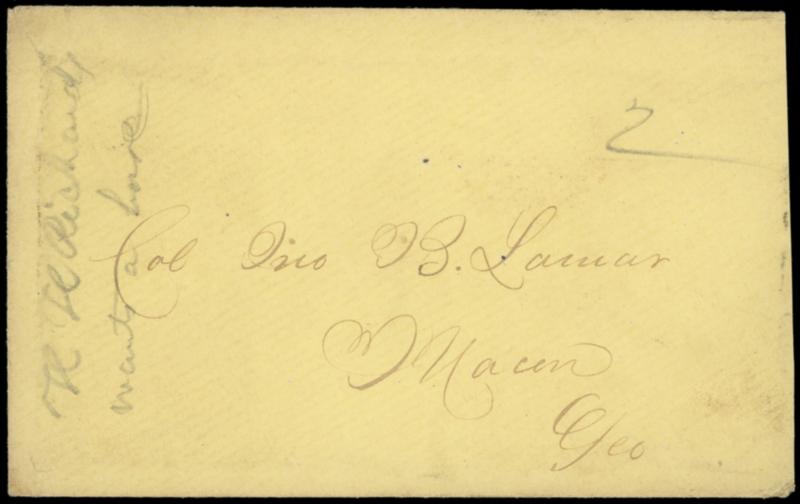 2
Col Jno B. Lamar
Macon
Geo
Richards
wants a horse